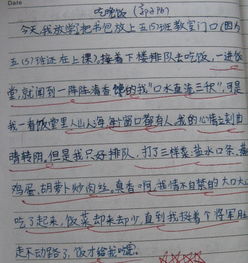 Date
吃晚饭
今天,我放学把书包放上五(5)班教室门口(因为
五(5)班还在上课),接着下楼排队去吃饭,一进饭
堂,就闻到一阵阵清香馋的我“口水直流三尺”,可是
我一看饭堂里人山人海,每个窗口都有人,我的心情立刻由
晴转阴,但是我只好排队,打了三样菜:盐水口条、蒸
鸡蛋、胡萝卜炒肉丝,真香啊,我情不自禁的大口大口
吃了起来,饭菜却来却少,直到我挺着个将军肚
走不动路了,饭才给我吃完